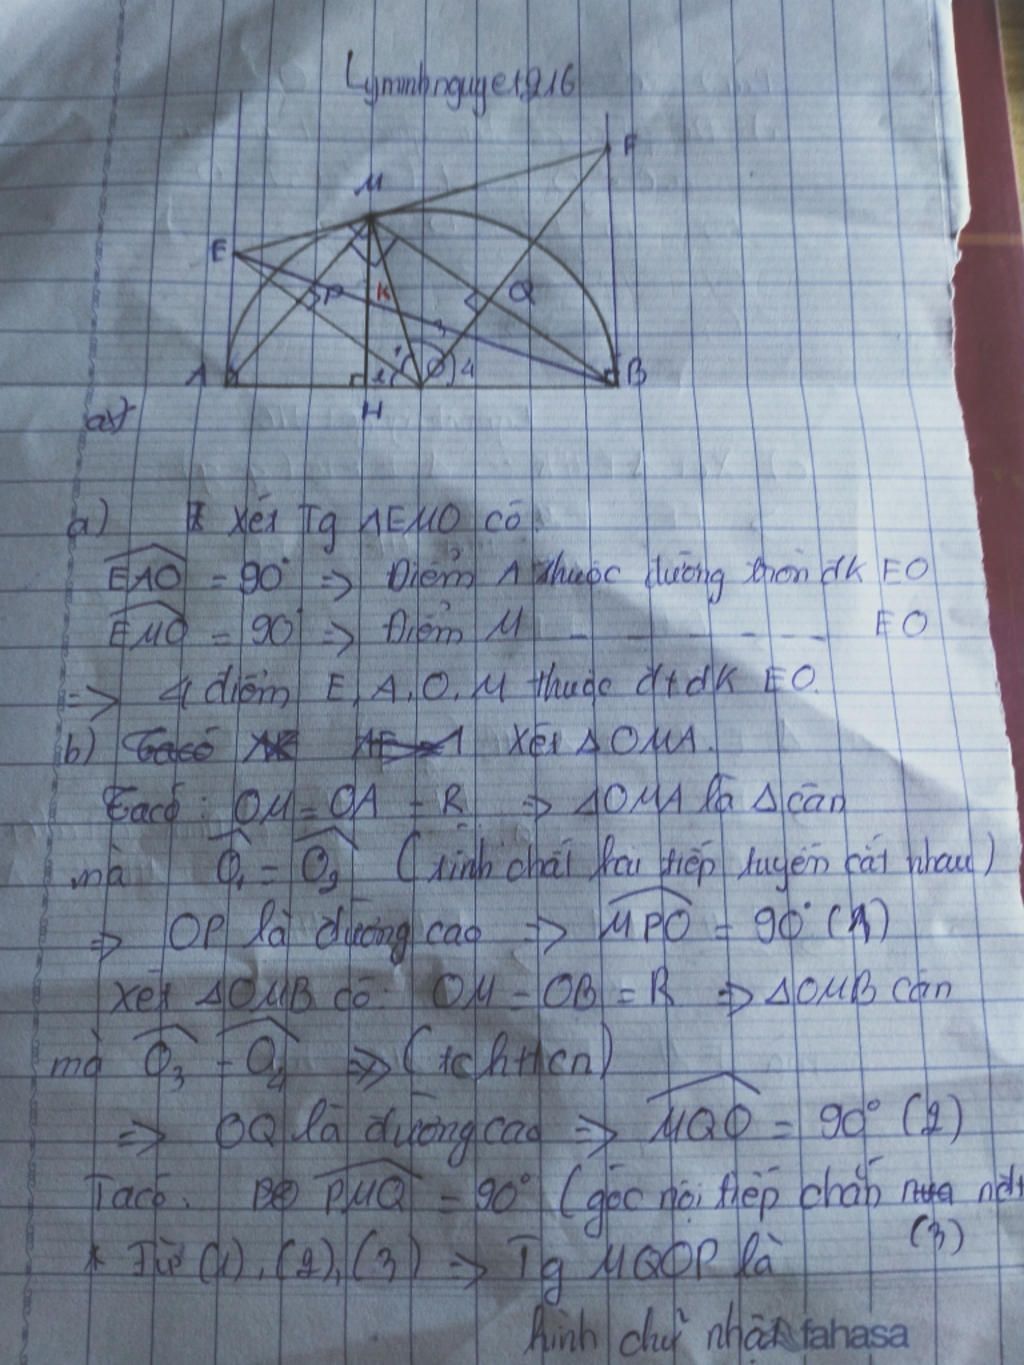 Lyminhnguye1216
F
M
E
P
K
Q
3
1
2
O
4
A
B
H
a)
a) Xét Tg AEMO có
EAO = 90° => Điểm A thuộc đường tròn đk EO
EMO = 90° => Điểm M - - - - - - EO
=> 4 điểm E, A, O, M thuộc đt đk EO.
b) Xét ΔOMA.
Ta có: OM = OA = R => ΔOMA là Δ cân
mà O1 = O2 (tính chất hai tiếp tuyến cắt nhau)
=> OP là đường cao => MPO = 90° (1)
Xét ΔOMB có: OM = OB = R => ΔOMB cân
mà O3 = O4 => (tc h tt cn)
=> OQ là đường cao => MQO = 90° (2)
Ta có: PMQ = 90° (góc nội tiếp chắn nửa
(3)
* Từ (1), (2), (3) => Tg MQOP là
hình chữ nhật
fahasa